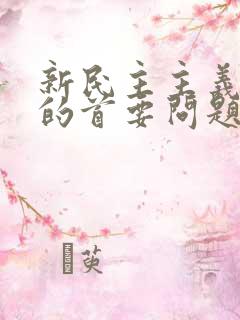 新民主主義
的首要問題
萸